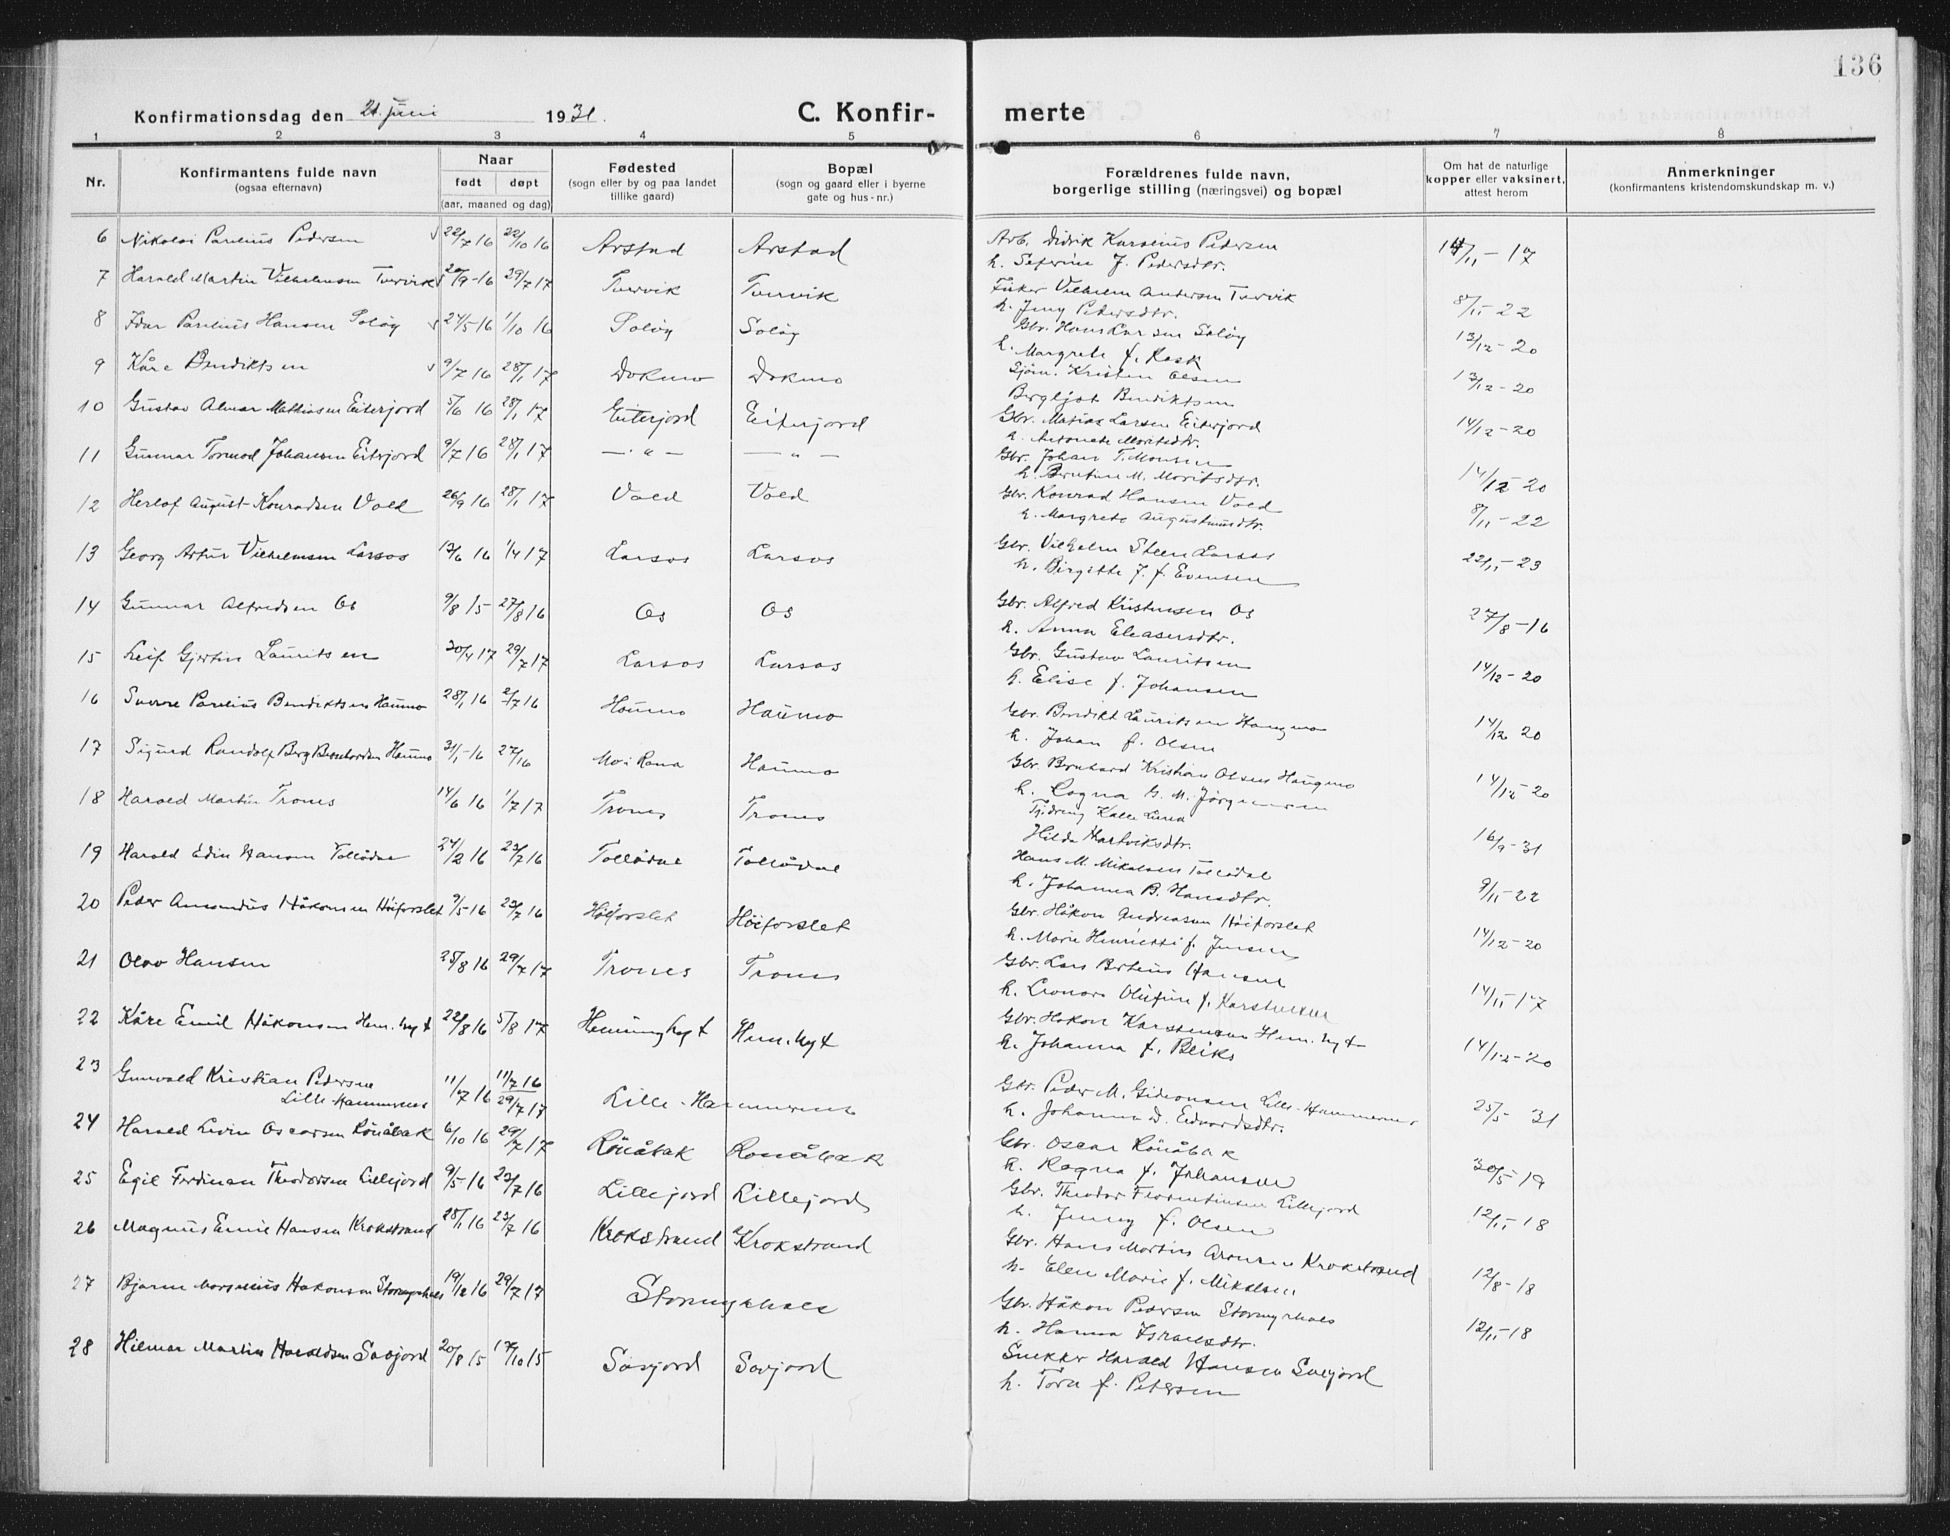 136
Konfirmationsdag den 21. Juni 1931. C. Konfir- merte
1 2 3 4 5 6 7 8
Nr. Konfirmantens fulde navn (ogsaa efternavn) Naar født døpt (aar, maaned og dag) Fødested (sogn eller by og paa landet tillike gaard) Bopæl (sogn og gaard eller i byerne gate og hus-nr.) Forældrenes fulde navn, borgerlige stilling (næringsvei) og bopæl Om hat de naturlige kopper eller vaksinert, attest herom Anmerkninger (konfirmantens kristendomskundskap m. v.)
6 Nikolai Parelius Pedersen 22/7 16 22/10 16 Arstad Arstad Arb. Didrik Kurenius Pedersen
h. Seferine J. Pedersdtr. /11-17
7 Harald Martin Vilhelmsen Tuvrik 20/9-16 29/7 17 Tuervik Tuervik Fisker Vilhelm Andersen Tuervik
h. Jeny Petersdtr. 8/11-22
8 Idar Parelius Hansen Soløy 24/5-16 1/10 16 Soløy Soløy Gbr. Hans Larsen Soløy
h. Margrete f. Rask 13/12-20
9 Kåre Bendiktsen 9/7 16 28/1 17 Dokmo Dokmo Sjøm. Kristen Olsen
Bergljot Bendiktsen 13/12-20
10 Gustav Almar Mathiasen Eiterjord 5/6 16 28/1 17 Eiterjord Eiterjord Gbr. Matias Larsen Eiterjord
h. Antonete Moritsdtr. 14/12-20
11 Gunnar Tormod Johansen Eiterjord 9/7 16 28/1 17 — " — — " — Gbr. Johan T. Monsen
h. Berntine M. Moritsdtr. 14/12-20
12 Herlof August Konradsen Vold 26/9 16 28/1 17 Vold Vold Gbr. Konrad Hansen Vold
h. Margrete Augustinusdtr. 8/11-22
13 Georg Artur Vilhelmsen Larsos 13/6 16 1/4 17 Larsos Larsos Gbr. Vilhelm Steen Larsos
h. Birgitte J. f. Evensen 22/11-23
14 Gunnar Alfredsen Os 9/8 15 27/8 16 Os Os Gbr. Alfred Kristensen Os
h. Anna Eleasersdtr. 27/8-16
15 Leif Gjertin Lauritsen 30/4 17 29/7 17 Larsos Larsos Gbr. Gustav Lauritsen
h. Elise f. Johansen 14/12-20
16 Sverre Parelius Bendiktsen Haumo 28/1 16 2/7 16 Haumo Haumo Gbr. Bendikt Lauritsen Haugmo
h. Johan f. Olsen 14/12 20
17 Sigurd Randolf Berg Bernhardsen Haumo 31/1-16 27/16 Mo i Rana Haumo Gbr. Bernhard Kristian Olsen Haugmo
h. Ragna G. M. Jørgensen 14/12-20
18 Harald Martin Trones 14/6 16 1/7 17 Trones Trones Kalle Lund
Hilda Hartviksdtr. 16/9-31
19 Harald Edin Hansen Tollådal 24/2 16 23/7 16 Tollådal Tollådal Hans M. Mikalsen Tollådal
h. Johanna B. Hansdtr. 9/11-22
20 Peder Amandus Håkonsen Høiforslet 9/5-16 23/7 16 Høiforslet Høiforslet Gbr. Håkon Andreasen Høiforslet
h. Marie Henriette f. Jensen 14/12-20
21 Olav Hansen 25/8 16 29/7 17 Trones Trones Gbr. Lars Berteus Hansen
h. Leonora Olufine f. Karstensen 14/11-17
22 Kåre Emil Håkonsen Hem.hyt 22/8 16 5/8 17 Hemminghyt Hem.hyt Gbr. Hakon Karstensen Hem.hyt
h. Johanna f. Beiks 14/12-20
23 Gunvald Kristian Pedersen
Lille-Hammernes 11/7 16 11/7 16 29/7 17 Lille-Hammernes Gbr. Peder M. Gideonsen Lille-Hammernes
h. Johanna D. Edvardsdtr. 25/5 31
24 Harald Levin Oscarsen Rönåbak 6/10 16 29/7 17 Rönåbak Ronåbak Gbr. Oscar Rönåbak
h. Ragna f. Johansen 30/5-19
25 Egil Ferdinan Theodorsen Lillejord 9/5-16 23/7 16 Lillejord Lillejord Gbr. Theodor Florentinsen Lillejord
h. Jenny f. Olsen 12/11-18
26 Magnus Emil Hansen Krokstrand 28/1 16 23/7 16 Krokstrand Krokstrand Gbr. Hans Martin Aronsen Krokstrand
h. Elen Marie f. Mikalsen 12/8-18
27 Bjarne Marenius Hakonsen Stormyrhals 19/12 16 29/7 17 Stormyrhals Gbr. Håkon Pedersen Stormyrhals
h. Hanna Israelsdtr. 12/11-18
28 Hilmar Martin Haraldsen Savjord 20/8 15 17/10 15 Savjord Savjord Snekker Harald Hansen Savjord
h. Tora f. Petersen